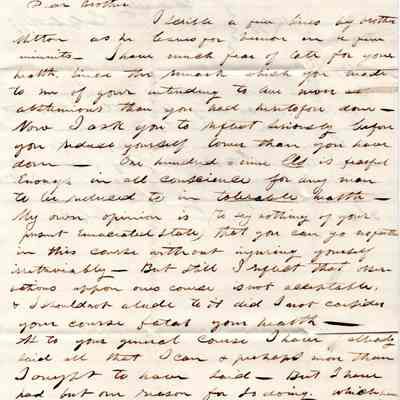 Dear Brother
I scribble a few lines by brother
Milton as he leaves for in a few
minuits — I have much fear of late for your
health. Since the remark which you made
to me of your intending to live more
abstemious than you had heretofore done —
Now I ask you to reflect seriously before
you reduce yourself lower than you have
done — One hundred & nine lbs is fearful
Enough in all conscience for any man
to be reduced to in tolerable health —
My own opinion is to say nothing of your
present Emaciated State, that you can go no
in this course without injuring yourself
— But still I reflect that
upon ones course is not acceptable,
& I should not alude to it did I not consider
your course fatal your health —
As to your general course I have already
said all that I can & perhaps more than
I ought to have said — But I have
had but one reason for so doing. which